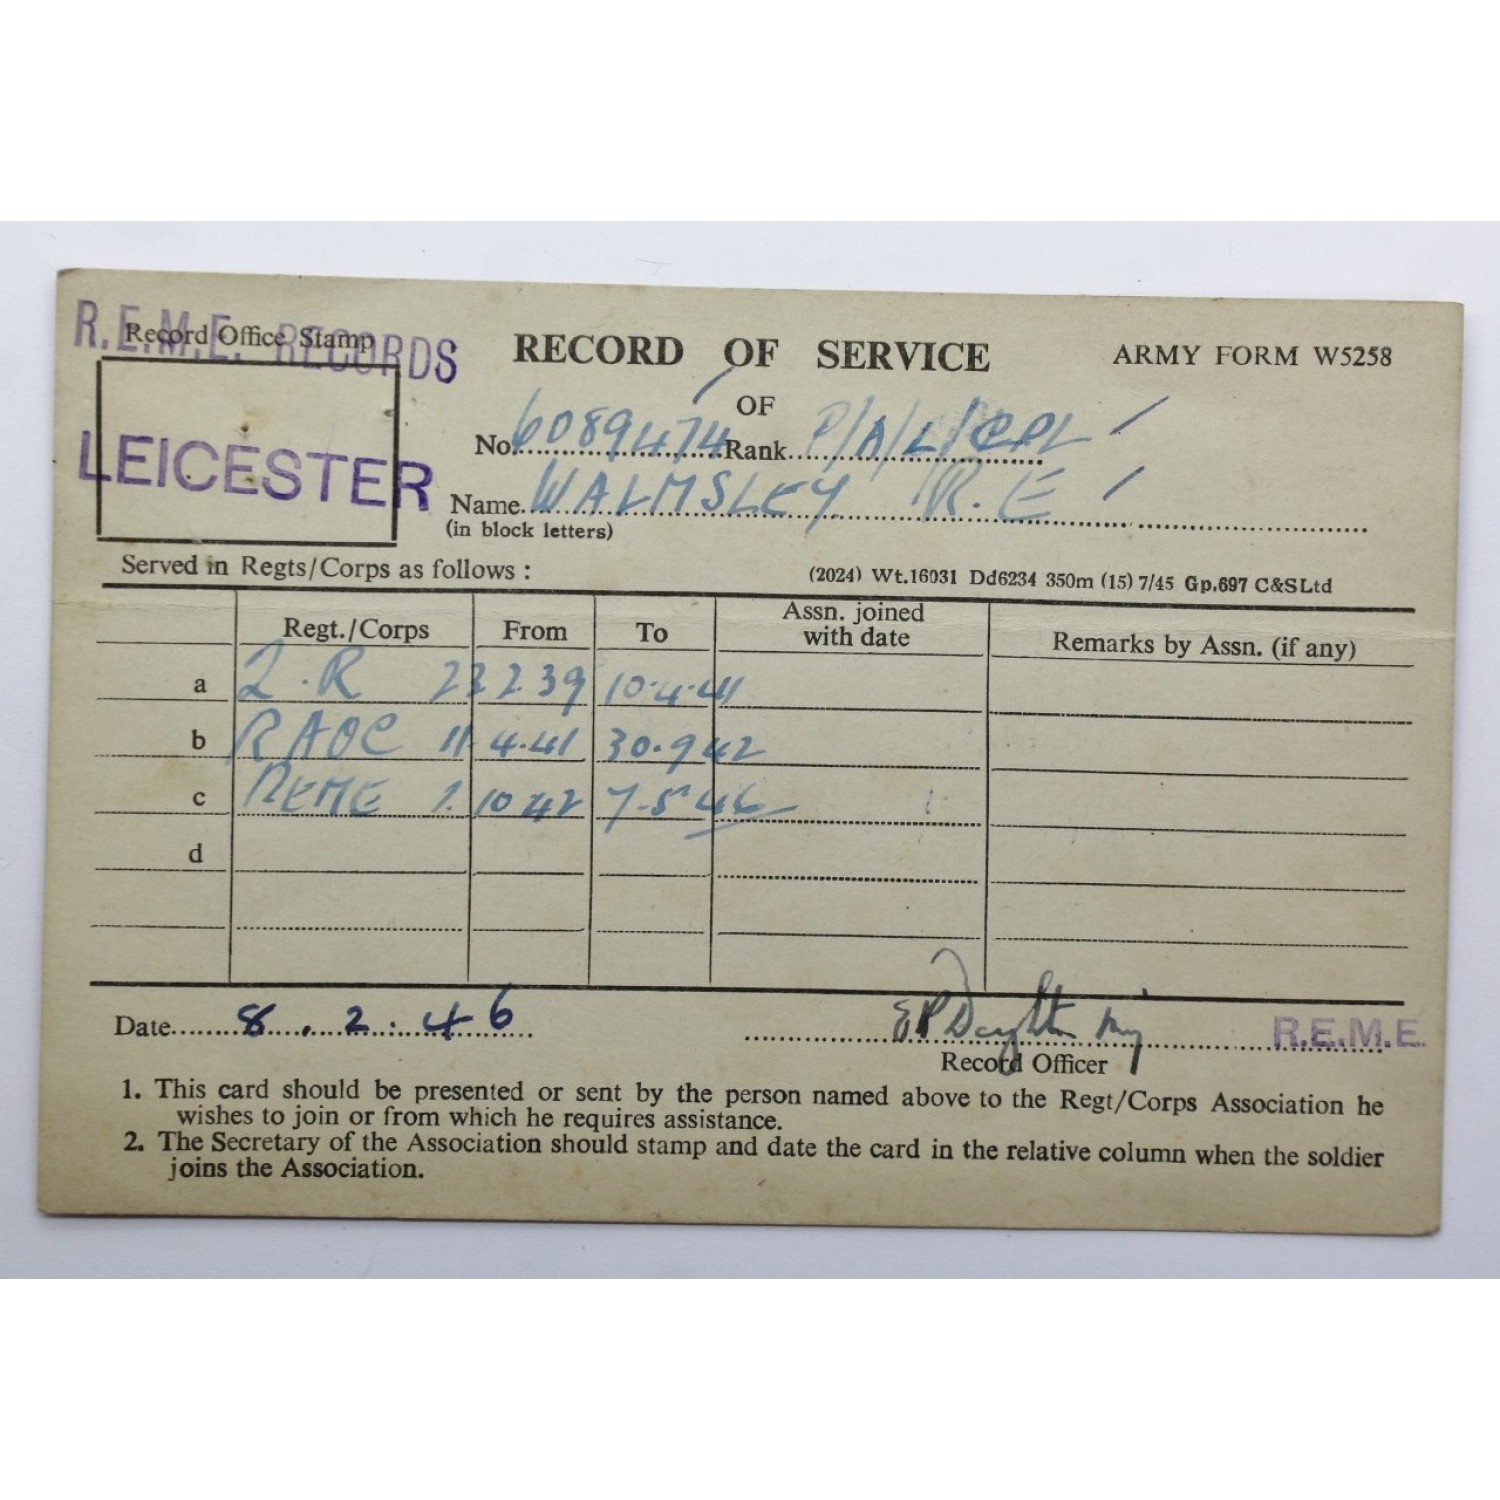 R.E.M.E. RECORDS
Record Office Stamp
LEICESTER
RECORD OF SERVICE
ARMY FORM W5258
OF
No. 6089474 Rank P/A/L/CPL
Name WALMSLEY R.E
(in block letters)
Served in Regts/Corps as follows :
(2024) Wt.16031 Dd6234 350m (15) 7/45 Gp.697 C&SLtd
Regt./Corps From To Assn. joined with date Remarks by Assn. (if any)
a 2.R 23 2 39 10.4.41
b RAOC 11 4.41 30.9 42
c REME 1. 10 42 7.5 46
d
Date 8.2.46
R.E.M.E.
Record Officer
1. This card should be presented or sent by the person named above to the Regt/Corps Association he
wishes to join or from which he requires assistance.
2. The Secretary of the Association should stamp and date the card in the relative column when the soldier
joins the Association.